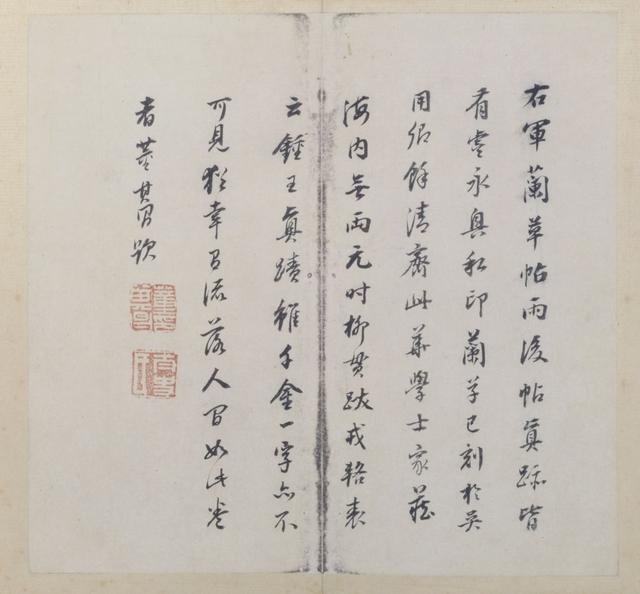 右軍蘭草帖雨後帖真跡皆
有虞永興私印蘭草已刻於吳
用卿餘清齋此華學士家藏
海內無兩元时柳貫跋戎輅表
云鍾王真蹟雖千金一字亦不
可見猶幸有流落人間如此卷
者董其昌題